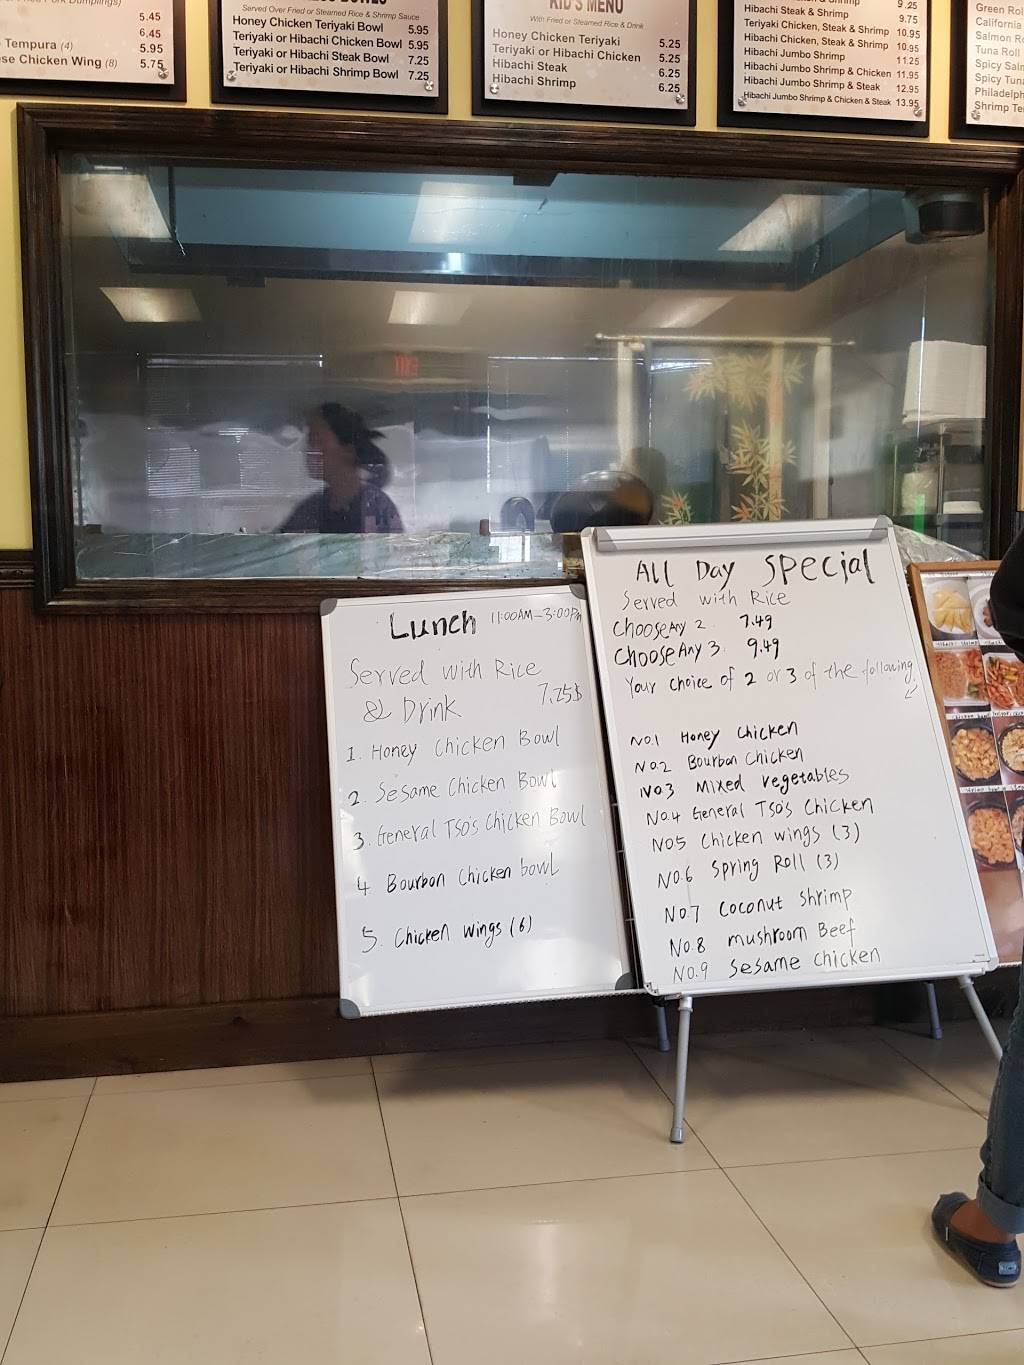 5.45
6.45
Tempura (4) 5.95
Chicken Wing (8) 5.75
Served Over Fried or Steamed Rice & Shrimp Sauce
Honey Chicken Teriyaki Bowl 5.95
Teriyaki or Hibachi Chicken Bowl 5.95
Teriyaki or Hibachi Steak Bowl 7.25
Teriyaki or Hibachi Shrimp Bowl 7.25
KID'S MENU
With Fried or Steamed Rice & Drink
Honey Chicken Teriyaki 5.25
Teriyaki or Hibachi Chicken 5.25
Hibachi Steak 6.25
Hibachi Shrimp 6.25
9.25
Hibachi Steak & Shrimp 9.75
Teriyaki Chicken, Steak & Shrimp 10.95
Hibachi Chicken, Steak & Shrimp 10.95
Hibachi Jumbo Shrimp 11.25
Hibachi Jumbo Shrimp & Chicken 11.95
Hibachi Jumbo Shrimp & Steak 12.95
Hibachi Jumbo Shrimp & Chicken & Steak 13.95
Green Rol
California
Salmon Ro
Tuna Roll
Spicy Salm
Spicy Tuna
Philadelph
Shrimp Te
Lunch 11:00AM-3:00Pm
Served with Rice
& Drink 7.25$
1. Honey Chicken Bowl
2. Sesame Chicken Bowl
3. General TSO's Chicken Bowl
4 Bourbon Chicken bowl
5. Chicken wings (6)
All Day Special
Served with Rice
Choose Any 2 7.49
Choose Any 3 9.49
Your choice of 2 or 3 of the following
NO.1 Honey Chicken
NO.2 Bourbon Chicken
NO.3 Mixed vegetables
NO.4 General TSO's Chicken
NO.5 Chicken wings (3)
NO.6 Spring Roll (3)
NO.7 Coconut Shrimp
NO.8 mushroom Beef
NO.9 Sesame chicken